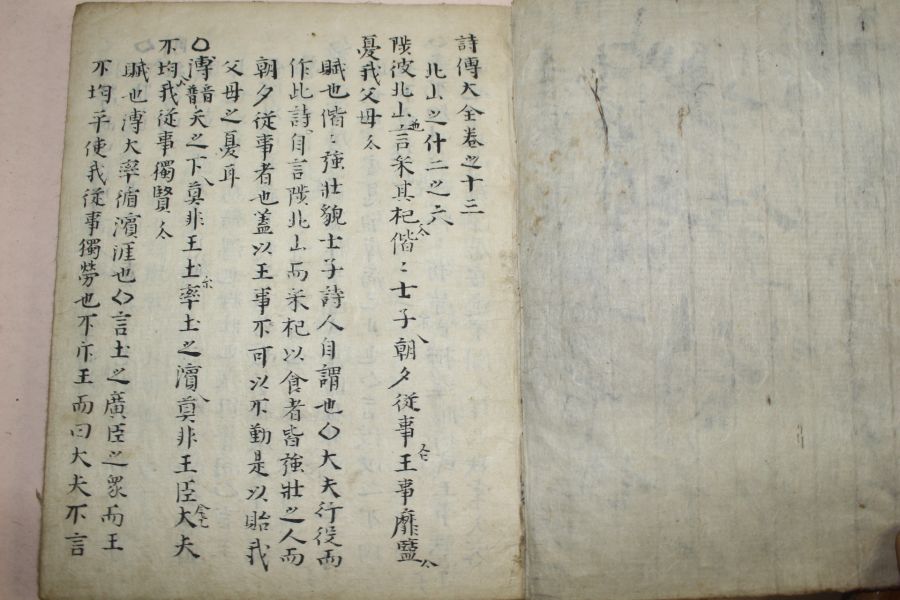 詩傳大全卷之十三
北山之什二之六
陟彼北山言采其杞偕〻士子朝夕從事王事靡盬
憂我父母
賦也偕〻強壯貌士子詩人自謂也○大夫行役而
作此詩自言陟北山而采杞以食者皆強壯之人而
朝夕從事者也盖以王事不可以不勤是以貽我
父母之憂耳
○溥普天之下莫非王土率土之濱莫非王臣大夫
不均我從事獨賢
賦也溥大率循濱涯也○言土之廣臣之衆而王
不均平使我從事獨勞也不斥王而曰大夫不言